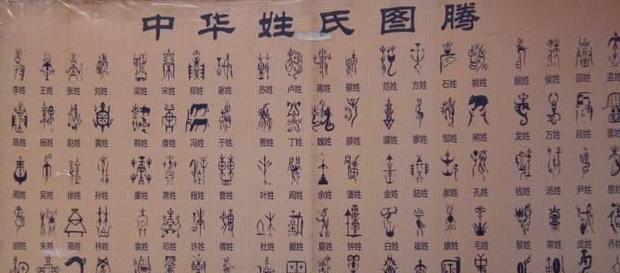 中华姓氏图腾
李姓 王姓 张姓 刘姓 梁姓 宋姓 郑姓 谢姓 苏姓 卢姓 蒋姓 蔡姓 范姓 方姓 石姓 姚姓 顾姓 侯姓 邵姓 孟姓
陈姓 杨姓 赵姓 黄姓 韩姓 唐姓 冯姓 于姓 贾姓 丁姓 魏姓 薛姓 廖姓 邹姓 熊姓 龙姓 万姓 段姓 雷姓
周姓 吴姓 徐姓 孙姓 董姓 萧姓 程姓 曹姓 叶姓 阎姓 余姓 潘姓 金姓 陆姓 郝姓 孔姓 钱姓 汤姓 尹姓
胡姓 朱姓 高姓 林姓 袁姓 邓姓 许姓 傅姓 杜姓 戴姓 夏姓 钟姓 白姓 崔姓 康姓 毛姓 黎姓 常姓 武姓 乔姓